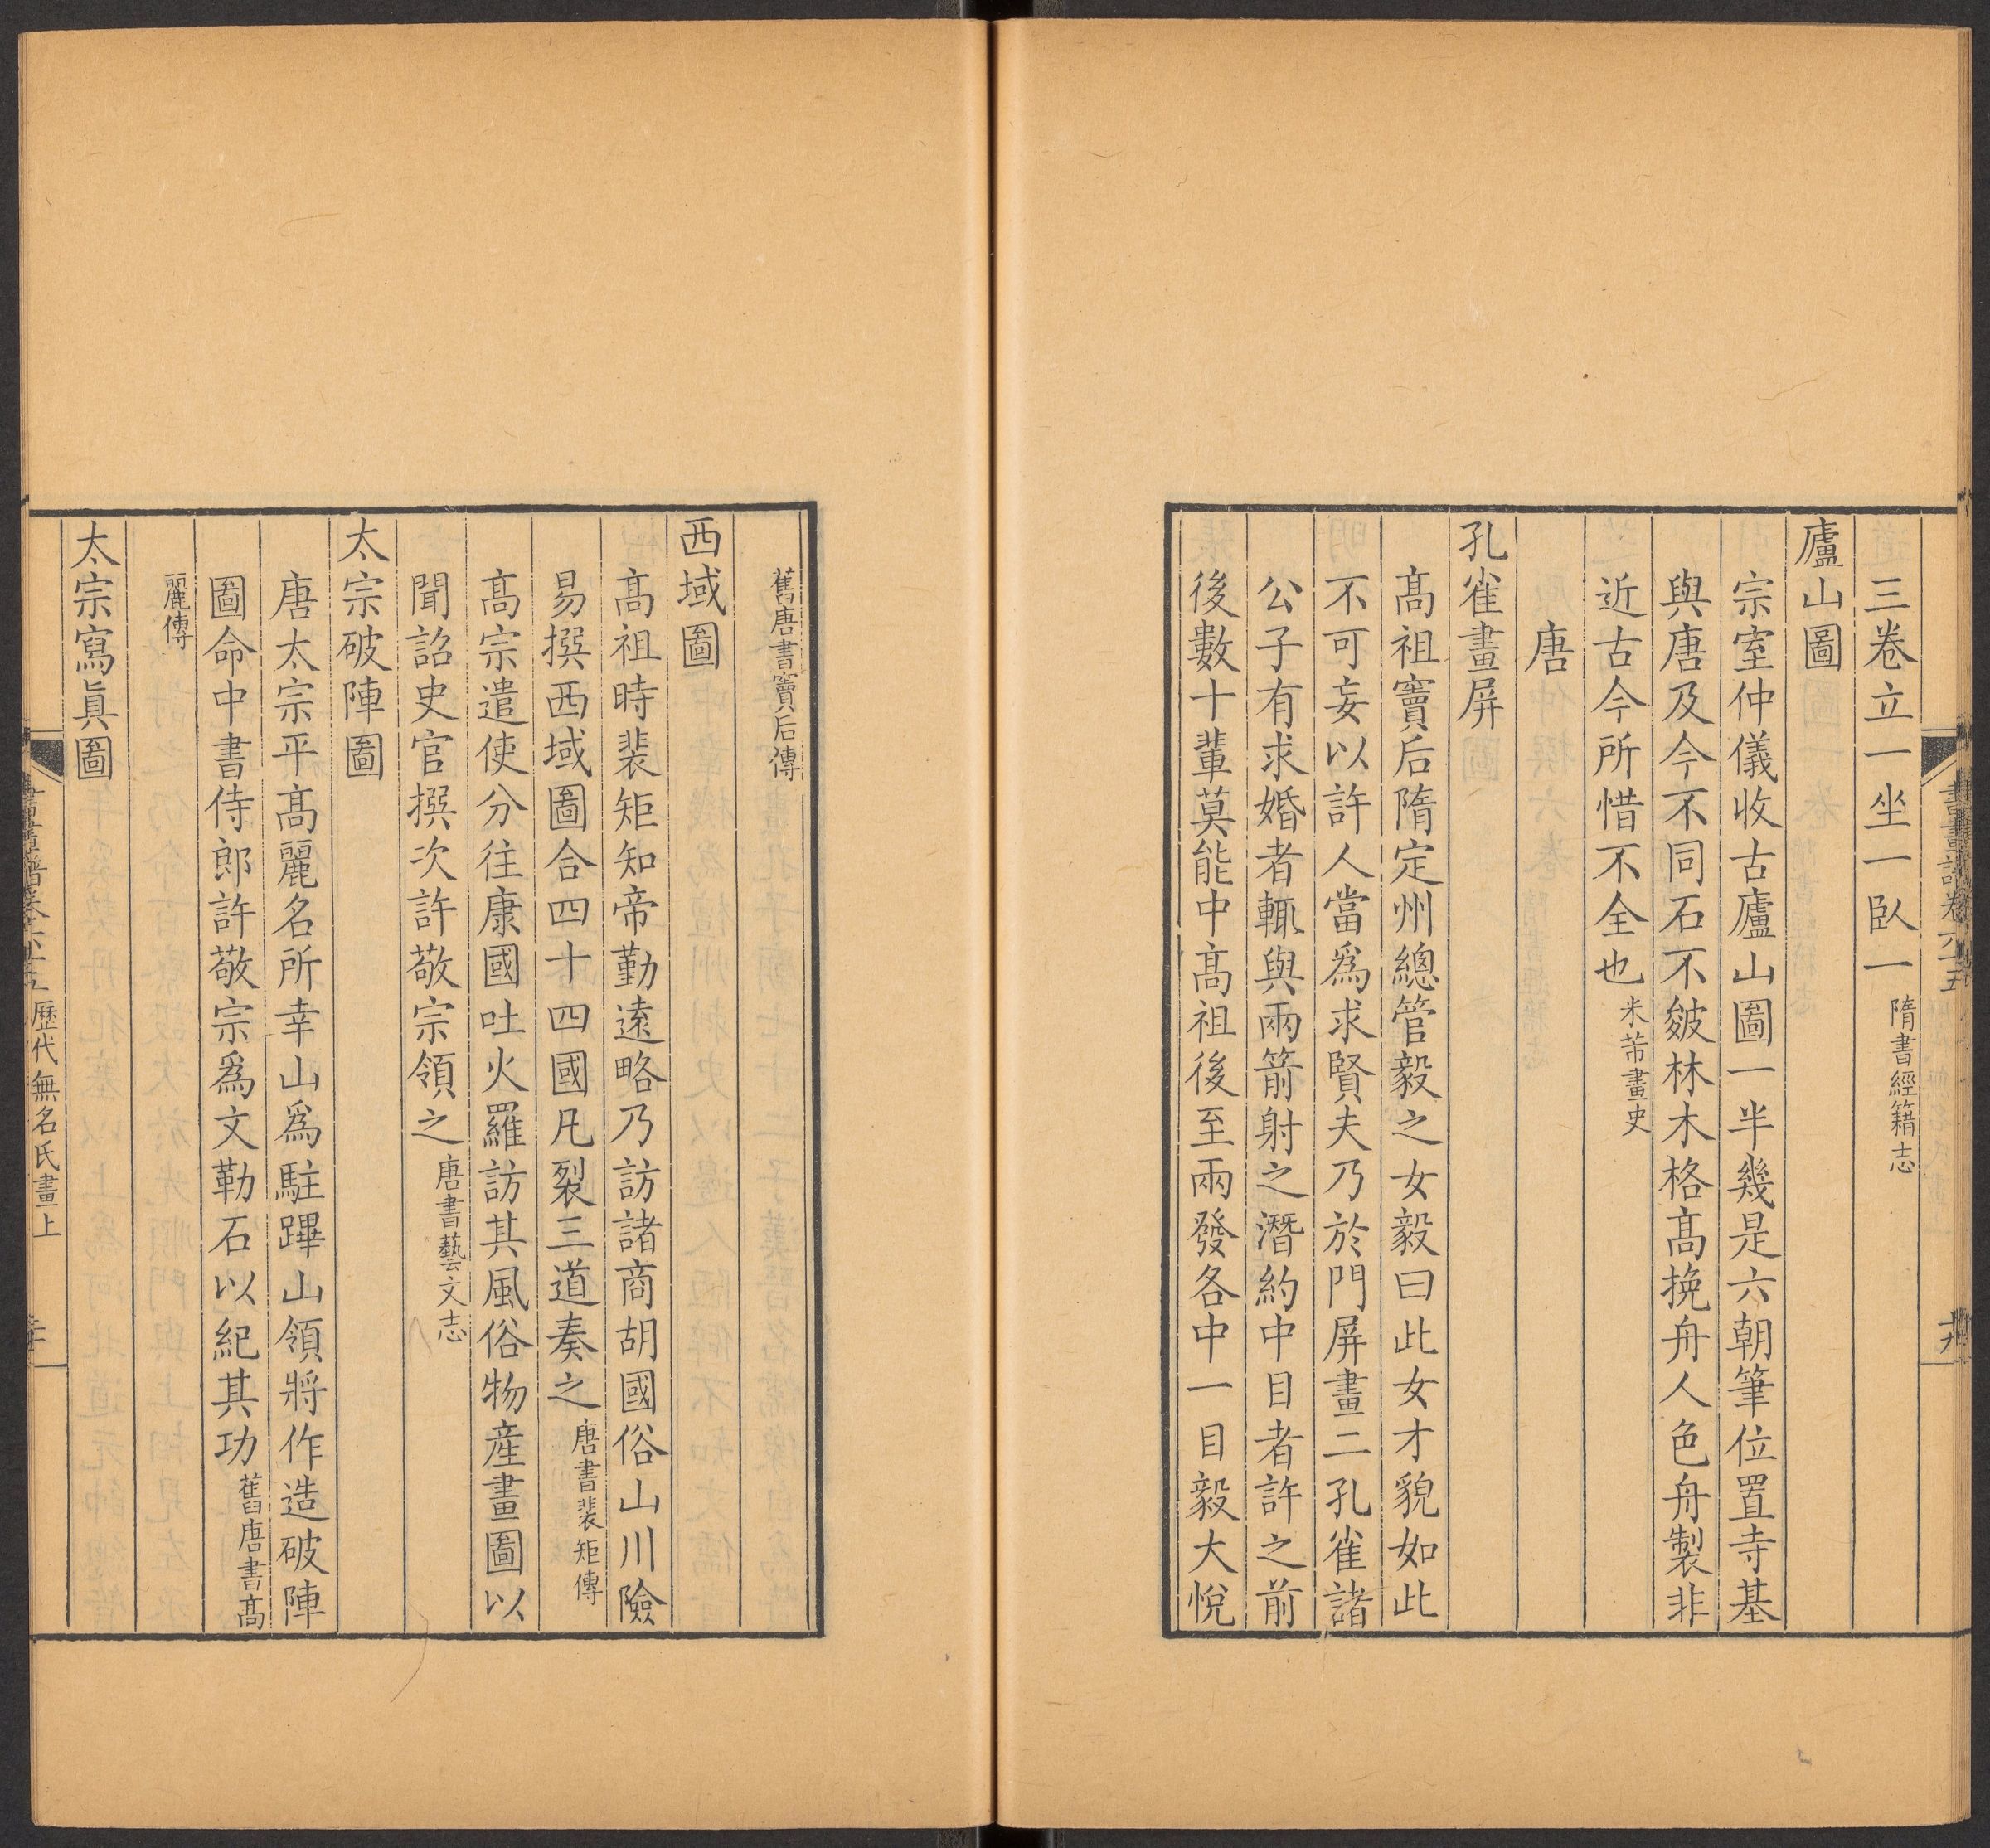 三卷立一坐一臥一隋書經籍志
廬山圖
宗室仲儀收古廬山圖一半幾是六朝筆位置寺基
與唐及今不同石不皴林木格髙挽舟人色舟製非
近古今所惜不全也米芾畫史
唐
孔雀畫屏
髙祖竇后隋定州總管毅之女毅曰此女才貌如此
不可妄以許人當爲求賢夫乃於門屏畫二孔雀諸
公子有求婚者輒與兩箭射之潛約中目者許之前
後數十輩莫能中髙祖後至兩發各中一目毅大悅
舊唐書竇后傳
西域圖
髙祖時裴矩知帝勤遠略乃訪諸商胡國俗山川險
易撰西域圖合四十四國凡裂三道奏之唐書裴矩傳
髙宗遣使分往康國吐火羅訪其風俗物産畫圖以
聞詔史官撰次許敬宗領之唐書藝文志
太宗破陣圖
唐太宗平髙麗名所幸山爲駐蹕山領將作造破陣
圖命中書侍郎許敬宗爲文勒石以紀其功舊唐書髙
麗傳
太宗寫眞圖
歷代無名氏畫上